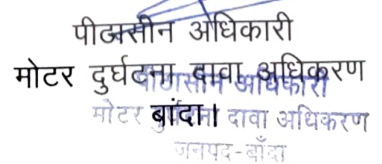 पीठासीन अधिकारी
मोटर दुर्घटना दावा अधिकरण
पीठासीन अधिकारी
बांदा।
मोटर दुर्घटना दावा अधिकरण
जनपद-बाँदा